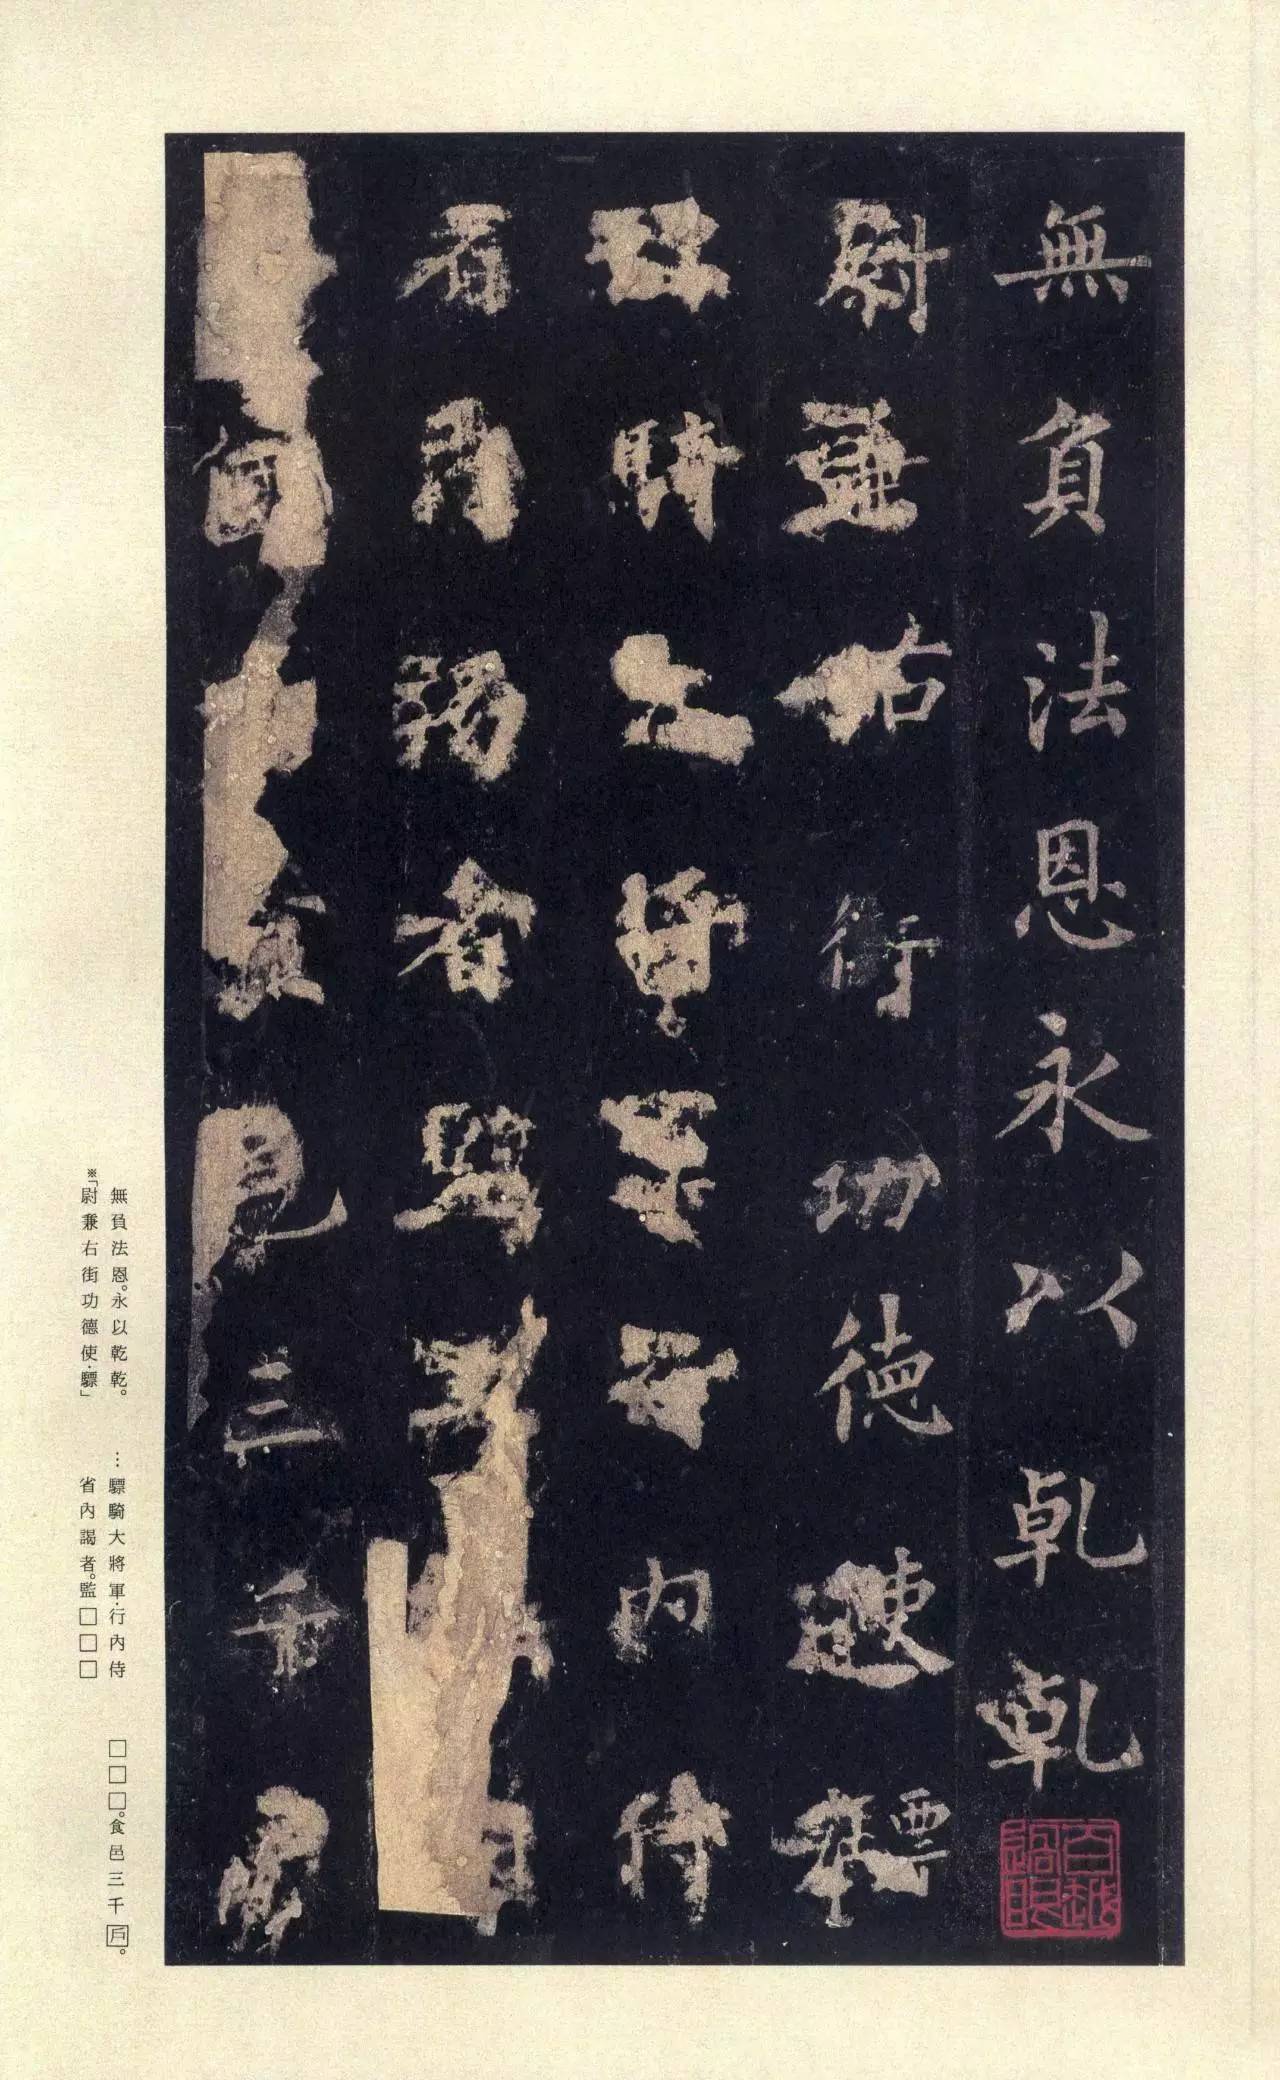 無負法恩永以乹乹
尉兼右街功德使驃
騎大將軍行內侍
省內謁者監
邑三千
百越過眼
無負法恩。永以乾乾。
※「尉兼右街功德使·驃」
…驃騎大將軍·行內侍
省內謁者。監□□□
□□□。食邑三千戶。